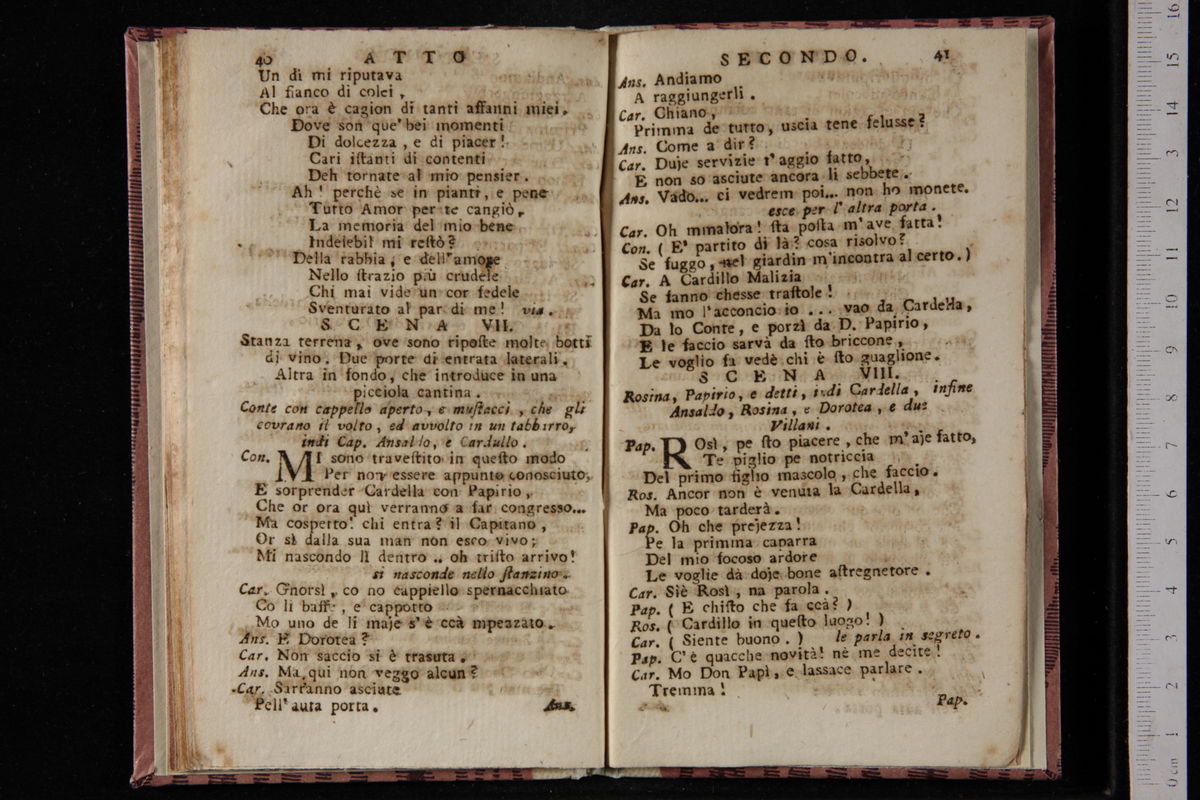 40 ATTO
Un dì mi riputava
Al fianco di colei,
Che ora è cagion di tanti affanni miei.
Dove son que' bei momenti
Di dolcezza, e di piacer!
Cari istanti di contenti
Deh tornate al mio pensier.
Ah! perchè se in pianti, e pene
Tutto Amor per te cangiò,
La memoria del mio bene
Indelebil mi restò?
Della rabbia, e dell'amore
Nello strazio più crudele
Chi mai vide un cor fedele
Sventurato al par di me! via.
SCENA VII.
Stanza terrena, ove sono riposte molte botti
di vino. Due porte di entrata laterali.
Altra in fondo, che introduce in una
picciola cantina.
Conte con cappello aperto, e mustacci, che gli
covrano il volto, ed avvolto in un tabbarro,
indi Cap. Ansaldo, e Cardullo.
Con. MI sono travestito in questo modo
Per non essere appunto conosciuto,
E sorprender Cardella con Papirio,
Che or ora quì verranno a far congresso...
Ma cospetto! chi entra? il Capitano,
Or sì dalla sua man non esco vivo;
Mi nascondo lì dentro .. oh tristo arrivo!
si nasconde nello stanzino.
Car. Gnorsì, co no cappiello spernacchiato
Co li baffe, e cappotto
Mo uno de li maje s'è ccà mpezzato.
Ans. E Dorotea?
Car. Non saccio si è trasuta.
Ans. Ma qui non veggo alcun?
Car. Sarranno asciute
Pell'auta porta. Ans.
SECONDO. 41
Ans. Andiamo
A raggiungerli.
Car. Chiano,
Primma de tutto, uscia tene felusse?
Ans. Come a dir?
Car. Duje servizie t'aggio fatto,
E non so asciute ancora li sebbete.
Ans. Vado... ci vedrem poi... non ho monete.
esce per l'altra porta.
Car. Oh mmalora! sta posta m'ave fatta!
Con. (E' partito di là? cosa risolvo?
Se fuggo, nel giardin m'incontra al certo.)
Car. A Cardillo Malizia
Se fanno chesse trastole!
Ma mo l'acconcio io ... vao da Cardella,
Da lo Conte, e porzì da D. Papirio,
E le faccio sarvà da sto briccone,
Le voglio fa vedè chi è sto guaglione.
SCENA VIII.
Rosina, Papirio, e detti, indi Cardella, infine
Ansaldo, Rosina, e Dorotea, e due
Villani.
Pap. ROsì, pe sto piacere, che m'aje fatto,
Te piglio pe notriccia
Del primo figlio mascolo, che faccio.
Ros. Ancor non è venuta la Cardella,
Ma poco tarderà.
Pap. Oh che prejezza!
Pe la primma caparra
Del mio focoso ardore
Le voglie dà doje bone astregnetore.
Car. Siè Rosì, na parola.
Pap. (E chisto che fa ccà?)
Ros. (Cardillo in questo luogo!)
Car. (Siente buono.) le parla in segreto.
Pap. C'è quacche novità! nè me decite!
Car. Mo Don Papì, e lassace parlare.
Tremma!
Pap.